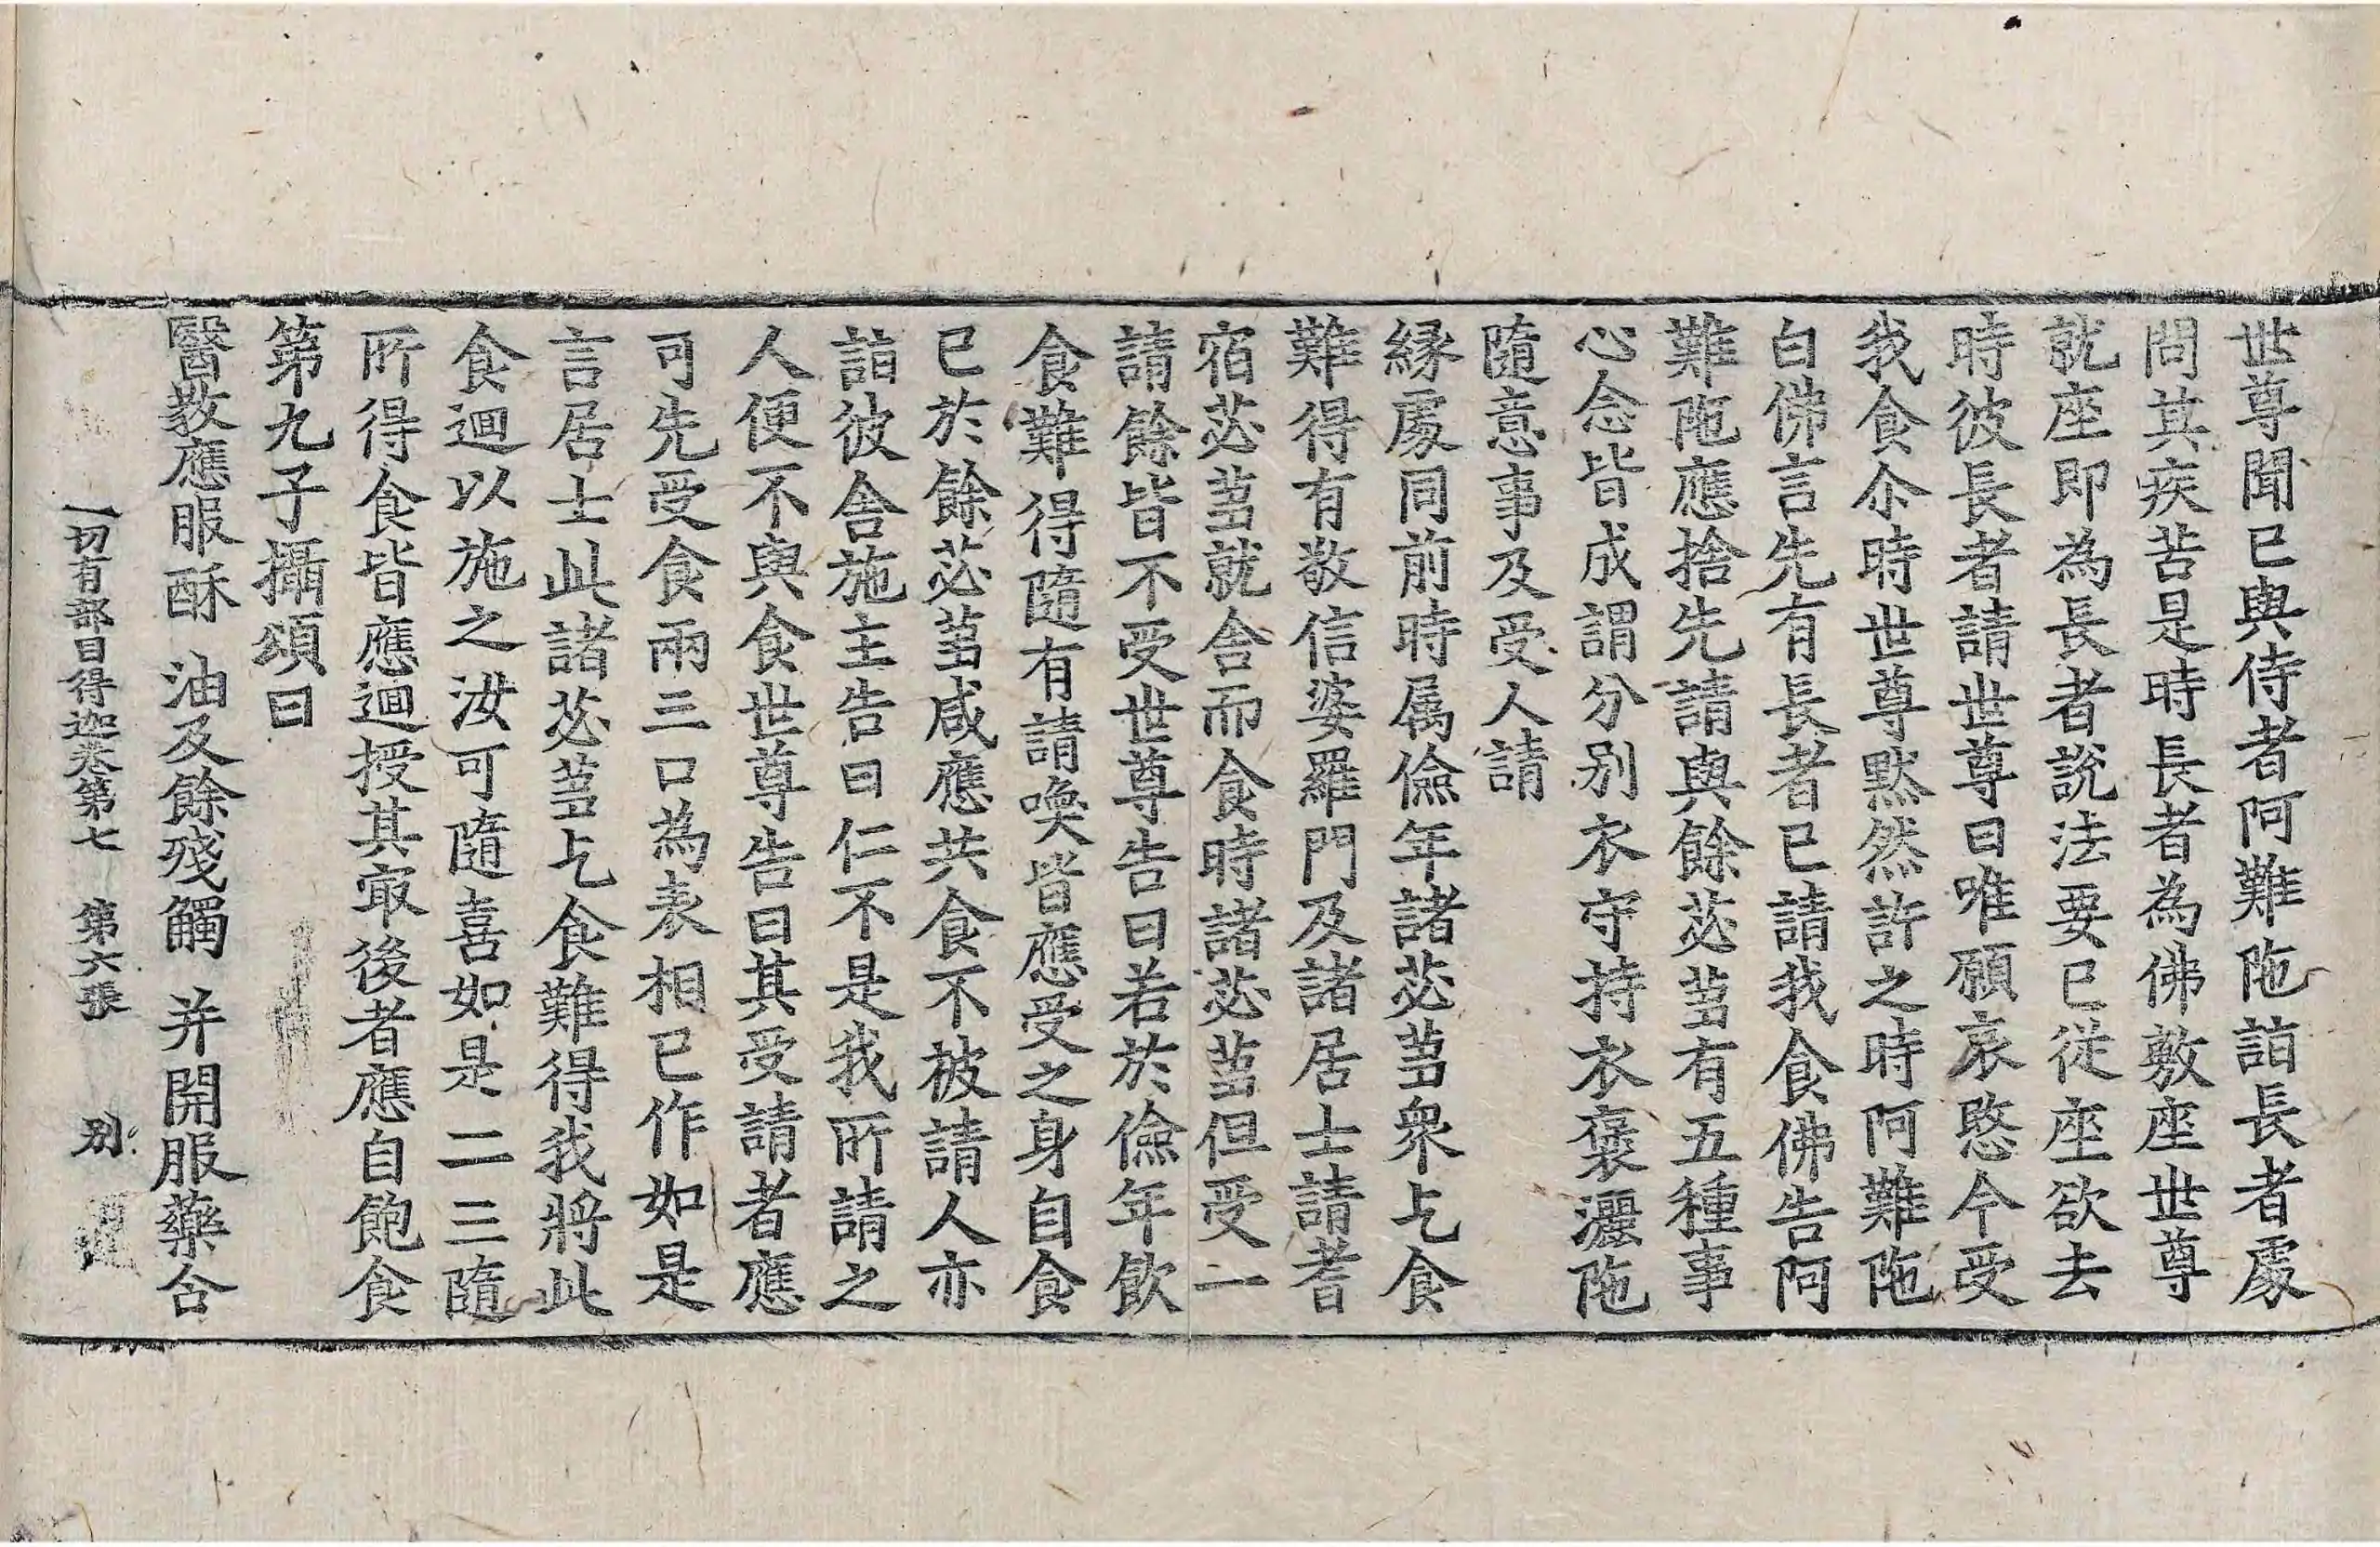 世尊聞已與侍者阿難陁詣長者處
問其疾苦是時長者為佛敷座世尊
就座即為長者說法要已從座欲去
時彼長者請世尊曰唯願哀愍今受
我食尒時世尊默然許之時阿難陁
白佛言先有長者已請我食佛告阿
難陁應捨先請與餘苾芻有五種事
心念皆成謂分別衣守持衣褒灑陁
隨意事及受人請
緣處同前時属儉年諸苾芻衆乞食
難得有敬信婆羅門及諸居士請耆
宿苾芻就舍而食時諸苾芻但受一
請餘皆不受世尊告曰若於儉年飲
食難得隨有請喚皆應受之身自食
已於餘苾芻咸應共食不被請人亦
詣彼舍施主告曰仁不是我所請之
人便不與食世尊告曰其受請者應
可先受食兩三口為表相已作如是
言居士此諸苾芻乞食難得我將此
食迴以施之汝可隨喜如是二三隨
所得食皆應迴授其㝡後者應自飽食
第九子攝頌曰
醫教應服酥 油及餘殘觸 并開服藥合
一切有部目得迦卷第七 第六張 別